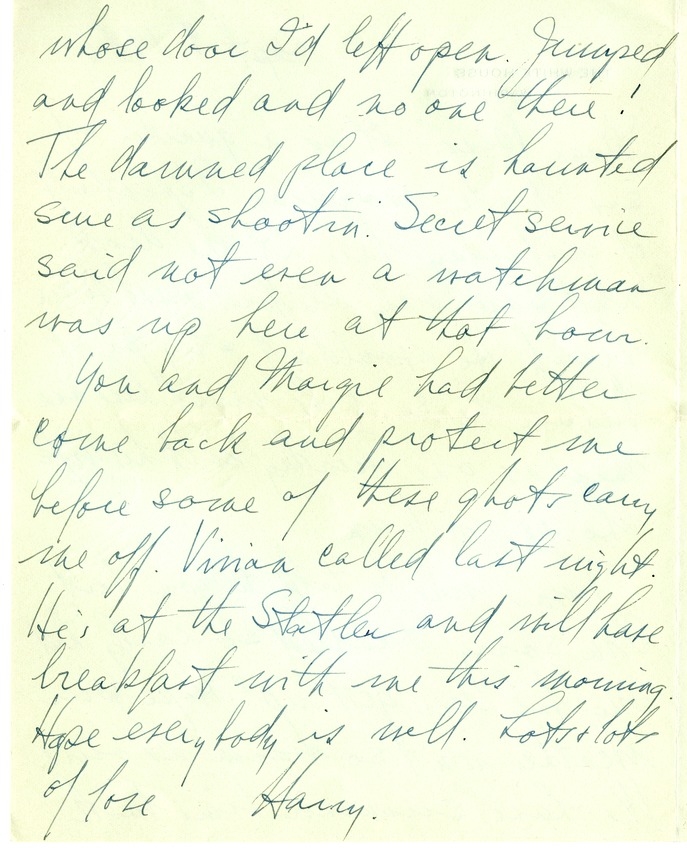 whose door I'd left open. Jumped
and looked and no one there!
The damned place is haunted
sure as shootin'. Secret service
said not even a watchman
was up here at that hour.
You and Margie had better
come back and protect me
before some of these ghots carry
me off. Vivian called last night.
He's at the Statler and will have
breakfast with me this morning.
Hope everybody is well. Lots & lots
of love Harry.